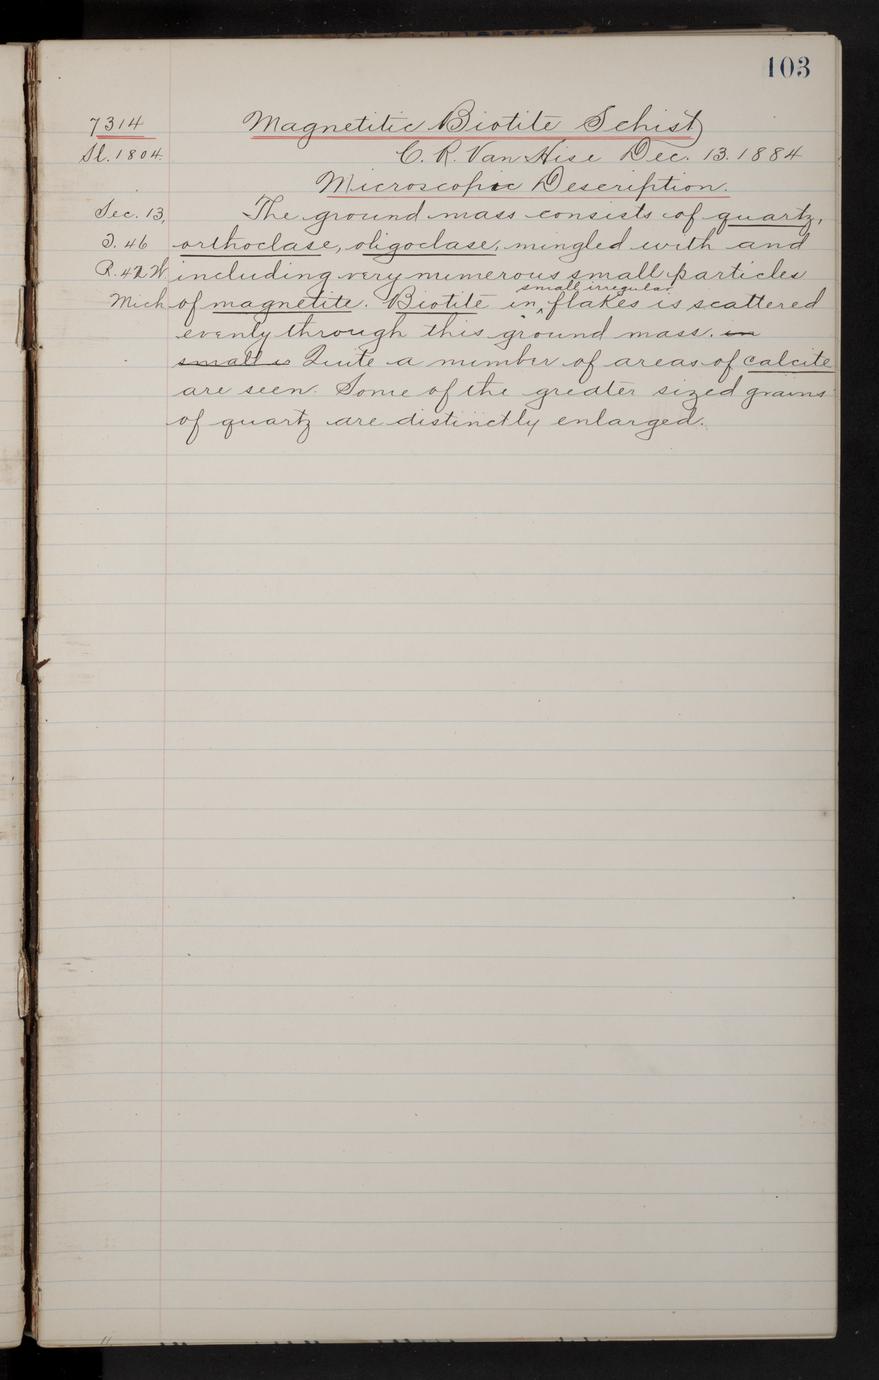 103
7314 Magnetitic Biotite Schist
Sl. 1804. C. R. Van Hise Dec. 13. 1884
Microscopic Description.
Sec. 13, The ground mass consists of quartz,
T. 46 orthoclase, oligoclase, mingled with and
R. 42 W. including very numerous small particles
small irregular
Mich of magnetite. Biotite in ^ flakes is scattered
evenly through this ground mass. in
small is Quite a number of areas of calcite
are seen. Some of the greater sized grains
of quartz are distinctly enlarged.